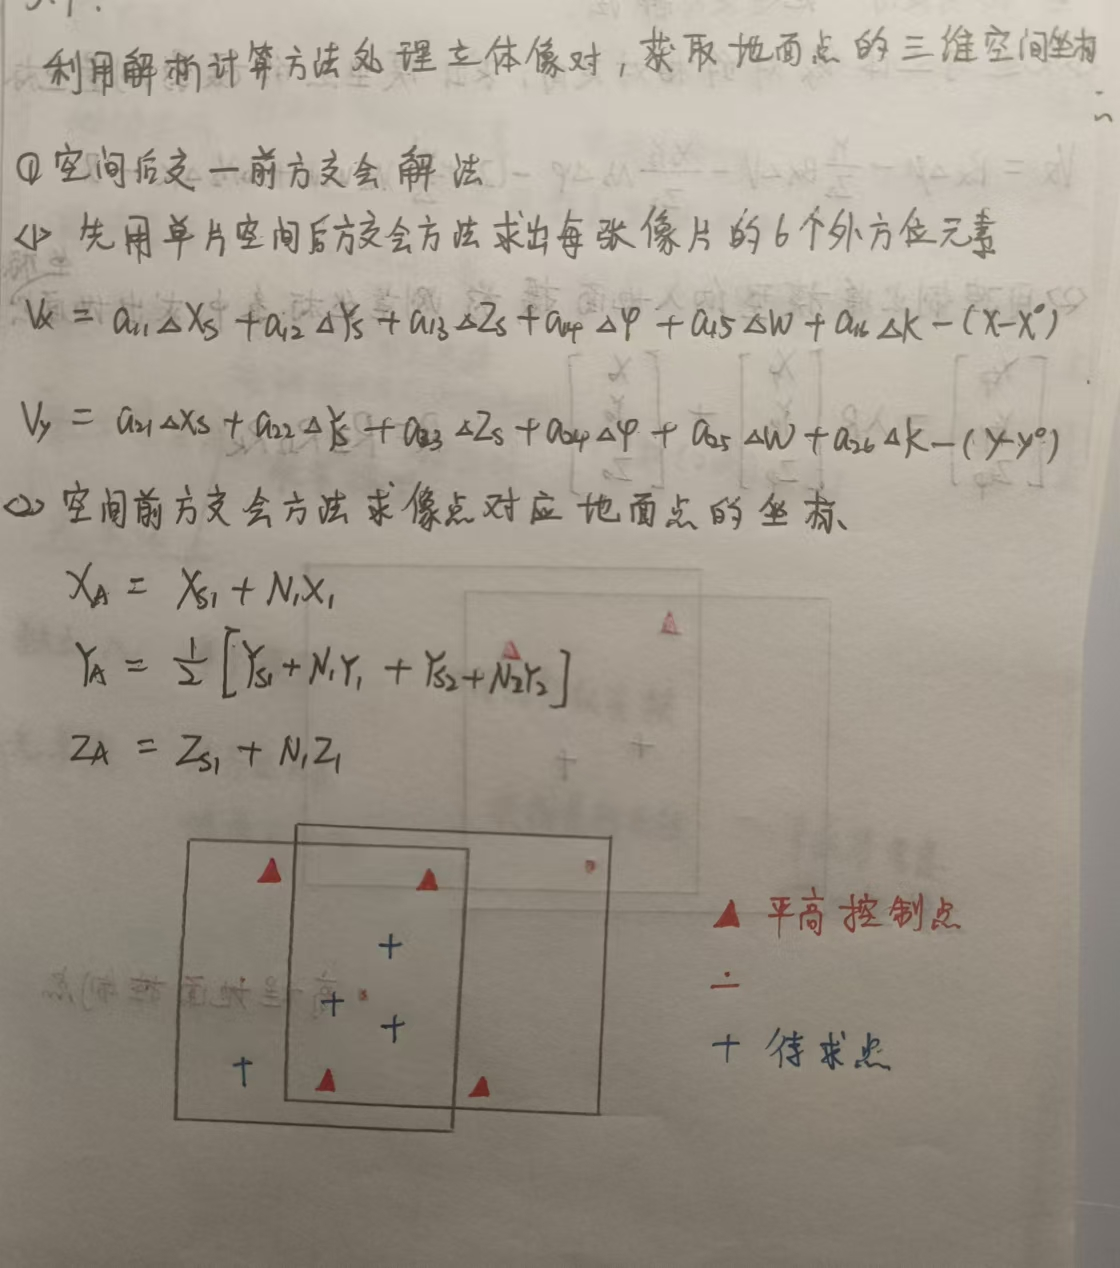 利用解析计算方法处理立体像对，获取地面点的三维空间坐标
①空间后交一前方交会解法
<1> 先用单片空间后方交会方法求出每张像片的6个外方位元素
Vx = a11ΔXs + a12ΔYs + a13ΔZs + a14Δφ + a15Δω + a16Δκ - (x-x°)
Vy = a21ΔXs + a22ΔYs + a23ΔZs + a24Δφ + a25Δω + a26Δκ - (y-y°)
<2> 空间前方交会方法求像点对应地面点的坐标、
XA = XS1 + N1X1
YA = 1/2 [YS1 + N1Y1 + YS2 + N2Y2]
ZA = ZS1 + N1Z1
▲ 平高控制点
+ 待求点